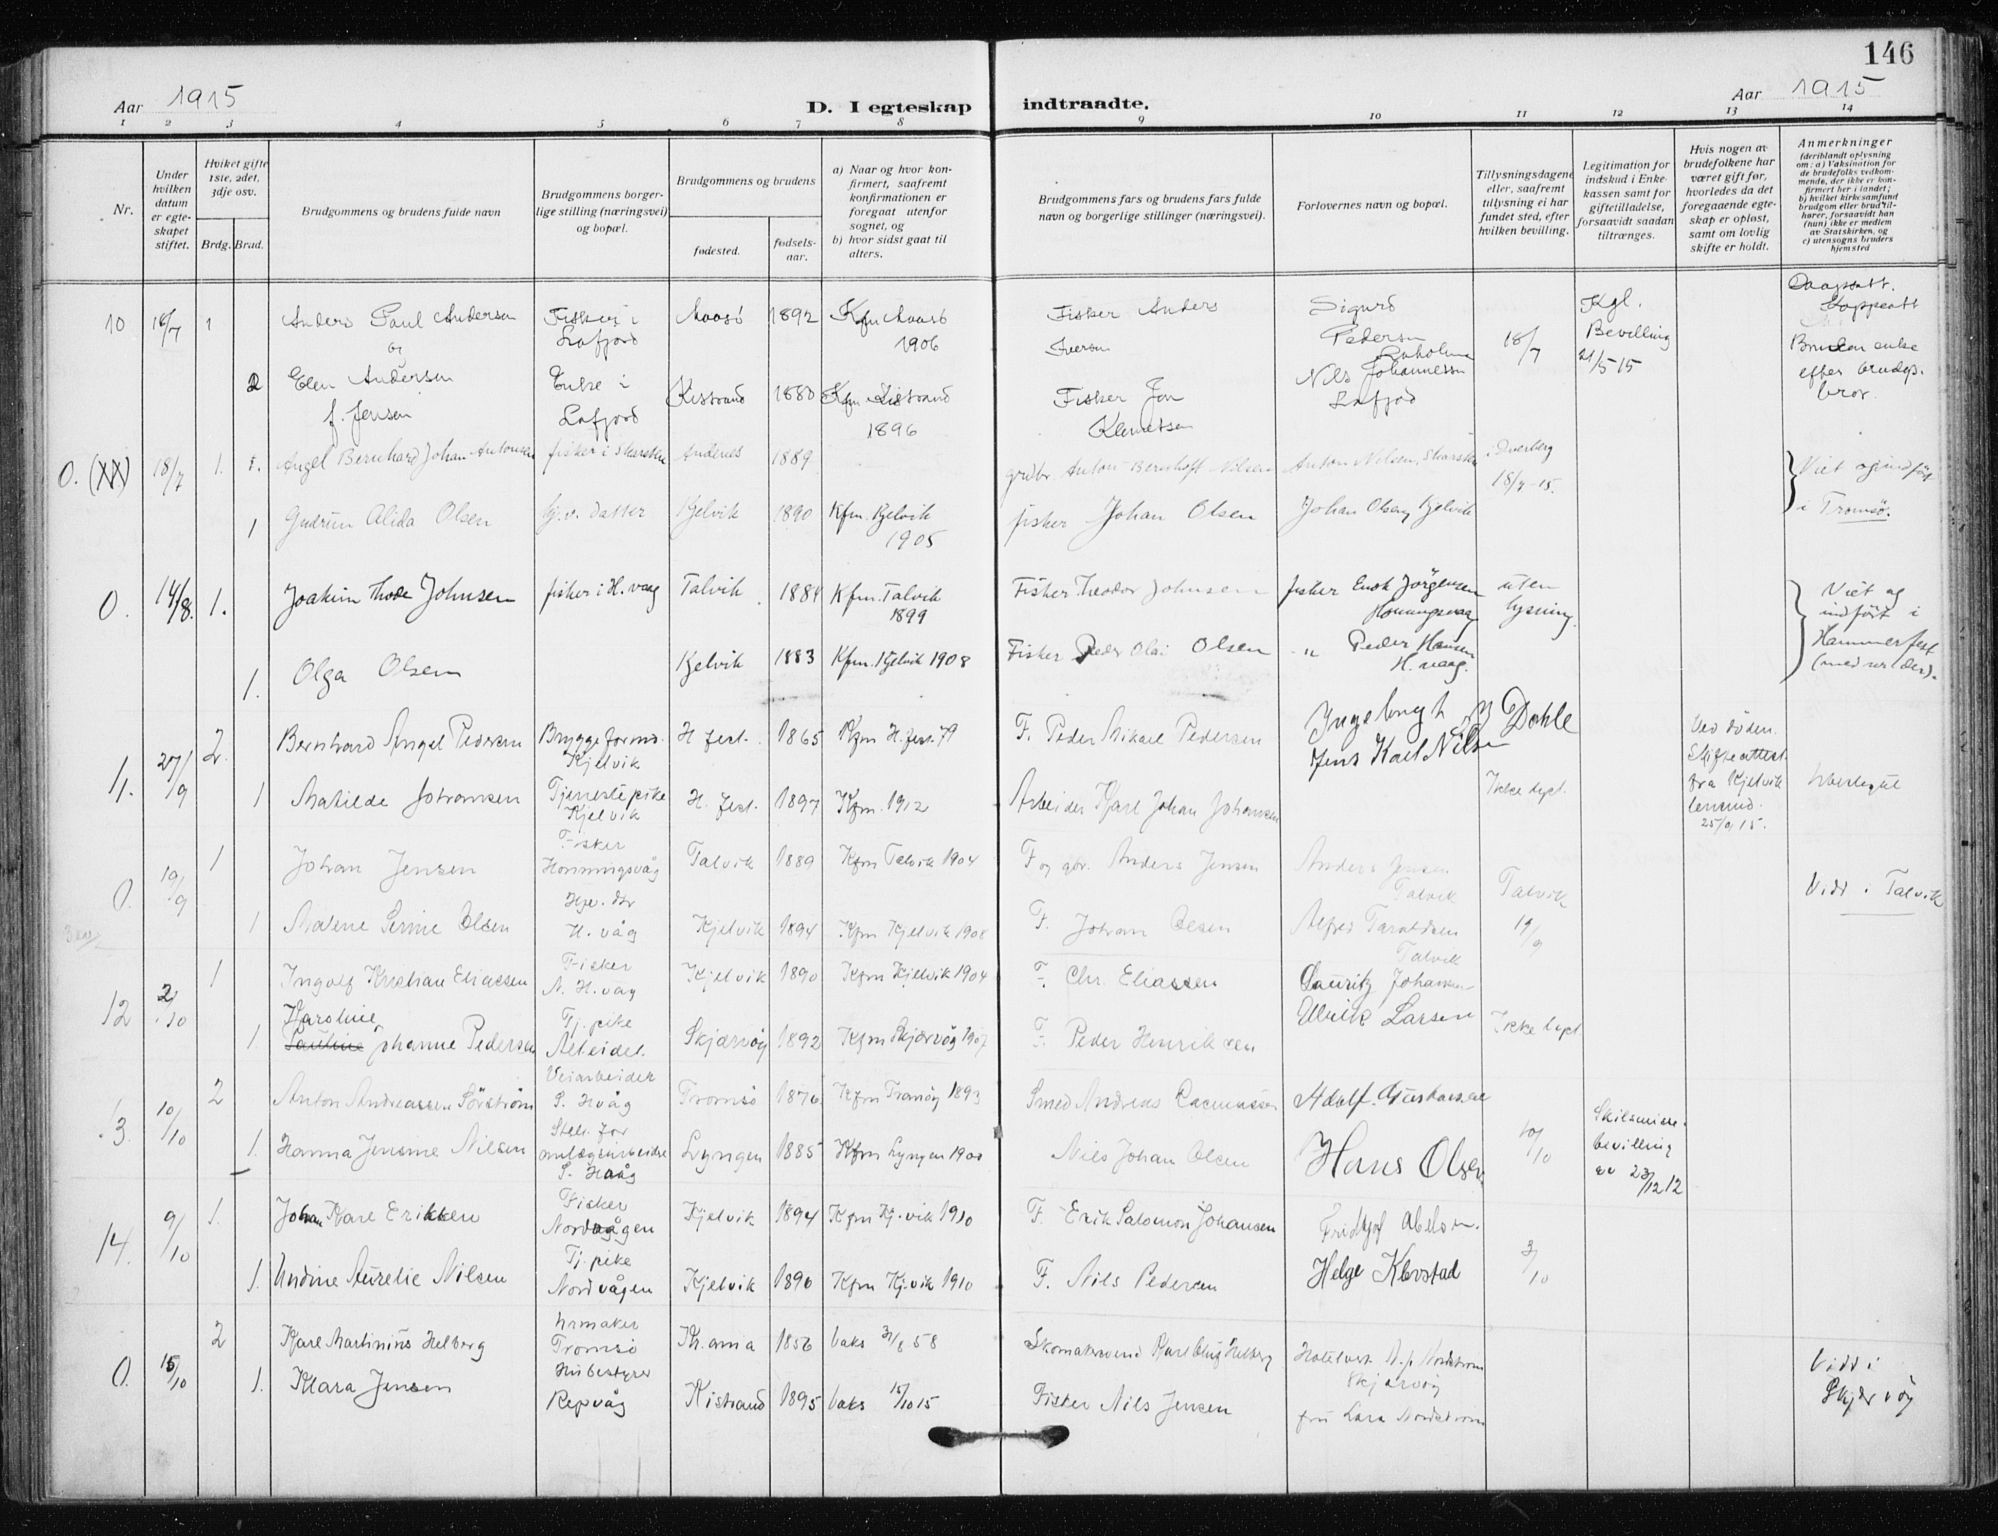 146
Aar 1915
D. I egteskap indtraadte.
Aar 1915
1 2 3 4 5 6 7 8 9 10 11 12 13 14
Nr.
Under hvilken datum er egteskapet stiftet.
Hviket gifte 1ste, 2det, 3dje osv.
Brdg. Brud.
Brudgommens og brudens fulde navn
Brudgommens borgerlige stilling (næringsvei) og bopæl.
Brudgommens og brudens
fødested.
fødselsaar.
a) Naar og hvor konfirmert, saafremt konfirmationen er foregaat utenfor sognet, og
b) hvor sidst gaat til alters.
Brudgommens fars og brudens fars fulde navn og borgerlige stillinger (næringsvei).
Forlovernes navn og bopæl.
Tillysningsdagene eller, saafremt tillysning ei har fundet sted, efter hvilken bevilling.
Legitimation for indskud i Enkekassen samt for giftetilladelse, forsaavidt saadan tiltrænges.
Hvis nogen av brudefolkene har været gift før, hvorledes da det foregaaende egteskap er opløst, samt om lovlig skifte er holdt.
Anmerkninger
(deriblandt oplysning om: a) Vaksination for de brudefolks vedkommende, der ikke er konfirmert her i landet; b) hvilket kirkesamfund brudgom eller brud tilhører, forsaavidt han (hun) ikke er medlem av Statskirken, og c) utensogns bruders hjemsted
10 18/7 1 Anders Paul Andersen Fisker i Lafjord Maasö 1892 Kfm Maasö 1906 Fisker Anders Iversen Sigurd Pedersen 18/7 Kgl. Bevilling 21/5 15
og
2 Elen Andersen f. Jensen Enke i Lafjord Kistrand 1880 Kfm Kistrand 1896 Fisker Jon Klemetsen Nils Johannessen Lafjord Bruden enke efter brudgs. bror.
0. 18/7 1. Angel Bernhard Johan Antonsen fisker i Skarsten Andenes 1889 grdbr. Anton Bernhoft Nilsen Anton Nilsen, Skarsten i Dverberg 18/7-15.
1 Gudrun Alida Olsen hj.v. datter Kjelvik 1890 Kfm. Kjelvik 1905 fisker Johan Olsen Johan Olsen, Kjelvik i Tromsø.
0. 14/8. 1. Joakim Thode Johnsen fisker i H. vaag Talvik 1884 Kfm. Talvik 1899 Fisker Theodor Johnsen fisker Enok Jörgensen Honningsvaag uten lysning. Viet og indført i Hammerfest
1. Olga Olsen Kjelvik 1883 Kfm. Kjelvik 1908 Fisker Peder Olai Olsen " Peder Hansen H. vaag.
11. 27/9 2. Bernhard Angel Pedersen Bryggeformd. Kjelvik H. fest. 1865 Kfm H. fest. 79 F. Peder Mikael Pedersen Dahle Jens Karl Nilsen Ved döden. Skifteattest fra Kjelvik lensmd. 25/9 15.
1 Matilde Johansen Tjenestepike Kjelvik H. fest. 1897 Kfm. 1912 Arbeider Karl Johan Johansen Ikke lyst.
0. 19/9 1 Johan Jensen Fisker Honningsvåg Talvik 1889 Kfm Talvik 1904 F og gbr. Anders Jensen Anders Jensen Talvik Talvik 19/9 Vidd i Talvik
1 Malene Serine Olsen Hje. dtr H. våg Kjelvik 1894 Kfm Kjelvik 1908 F. Johan Olsen Alfred Taraldsen Talvik
12 2/10 1 Ingolf Kristian Eliassen Fisker N. H. vag Kjelvik 1890 Kfm Kjelvik 1904 F. Chr. Eliassen Lauritz Johansen
Karoline
1 Pauline Johanne Pedersen Tj. pike Skjærvöy 1892 Kfm Skjærvöy 1907 F. Peder Henriksen Ulrik Larsen Ikke lyst
13. 10/10 2 Anton Andreassen Sörström Veiarbeider S. Hvåg Tromsö 1876 Kfm Tranöy 1893 Smed Andreas Rasmussen Adolf Gustavsen 10/10 Skilsmissebevilling av 23/12 12
1. Hanna Jensine Nilsen Stel. for anlægsarbeidre S. Hvåg Lyngen 1885 Kfm Lyngen 1900 Nils Johan Olsen Hans Olsen
14. 9/10 1. Johan Kare Eriksen Fisker Nordvågen Kjelvik 1894 Kfm Kj.vik 1910 F. Erik Salomon Johansen Fridtjof Abelsen. 3/10
1. Undine Aurelie Nilsen Tj. pike Nordvågen Kjelvik 1896 Kfm Kj.vik 1910 F. Nils Pedersen Helge Klevstad
0. 15/10 2 Karl Martinius Helberg Urmaker Tromsö Kr.ania 1856 vaks 31/8 58 Skomakersvend Karl Helberg Hotelvert N. p. Nordstrøm Skjærvöy Vidd i Skjærvöy
1. Klara Jensen Husbestyrer Repvåg Kistrand 1895 vaks 15/10 15 Fisker Nils Jensen fru Lara Nordstrøm